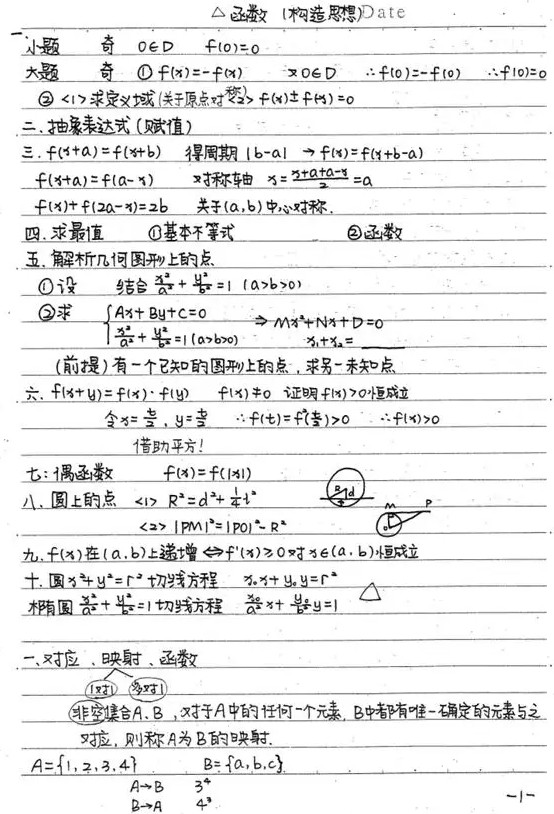 △函数 (构造思想) Date
一
小题 奇 0∈D f(0)=0
大题 奇 ① f(x)=-f(x) 又0∈D ∴f(0)=-f(0) ∴f(0)=0
② <1> 求定义域(关于原点对称) <2> f(x)±f(-x)=0
二.抽象表达式(赋值)
三.f(x+a)=f(x+b) 得周期|b-a| → f(x)=f(x+b-a)
f(x+a)=f(a-x) 对称轴 x=(x+a+a-x)/2=a
f(x)+f(2a-x)=2b 关于(a,b)中心对称.
四.求最值 ①基本不等式 ②函数
五.解析几何图形上的点
①设 结合 x²/a²+y²/b²=1 (a>b>0)
②求 { Ax+By+C=0
x²/a²+y²/b²=1(a>b>0) ⇒ Mx²+Nx+D=0
x₁+x₂=____
(前提)有一个已知的图形上的点,求另一未知点
六.f(x+y)=f(x)·f(y) f(x)≠0 证明f(x)>0恒成立
令x=t/2, y=t/2 ∴f(t)=f²(t/2)>0 ∴f(x)>0
借助平方!
七:偶函数 f(x)=f(|x|)
八.圆上的点 <1> R²=d²+¼l² R d
<2> |PM|²=|PO|²-R² M P O
九.f(x)在(a,b)上递增⇔f'(x)≥0对x∈(a,b)恒成立
十.圆x²+y²=r²切线方程 x₀x+y₀y=r²
椭圆 x²/a²+y²/b²=1切线方程 x₀/a² x+y₀/b² y=1 △
一、对应、映射、函数
1对1 多对1
非空集合A、B,对于A中的任何一个元素,B中都有唯一确定的元素与之
对应,则称A为B的映射.
A={1,2,3,4} B={a,b,c}
A→B 3⁴
B→A 4³
-1-